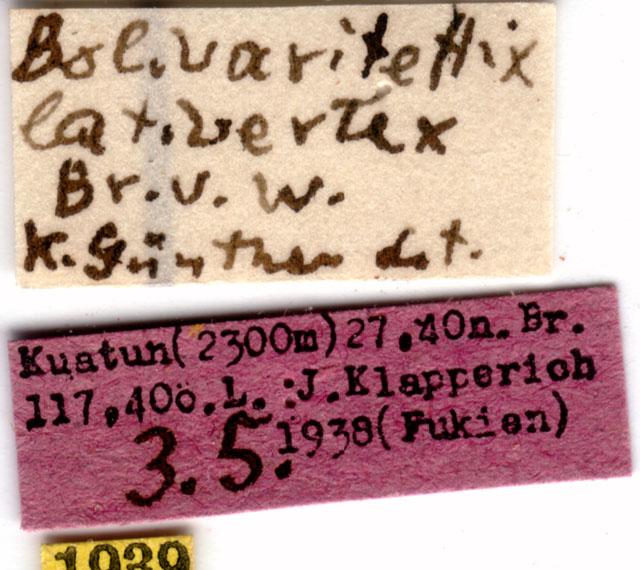 Bolivaritettix
lativertex
Br. v. W.
K. Günther det.
Kuatun(2300m)27,40n.Br.
117,40ö.L. :J.Klapperich
3.5. 1938(Fukien)
1939